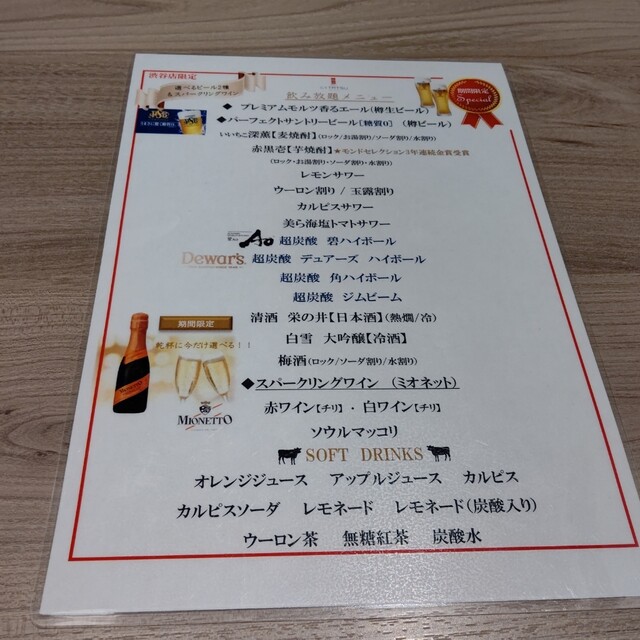 渋谷店限定
選べるビール2種
&スパークリングワイン
飲み放題メニュー
期間限定
Special
◆ プレミアムモルツ香るエール(樽生ビール)
◆パーフェクトサントリービール[糖質0] (樽ビール)
いいちこ深薫【麦焼酎】(ロック/お湯割り/ソーダ割り/水割り)
赤黒壱【芋焼酎】★モンドセレクション3年連続金賞受賞
(ロック・お湯割り・ソーダ割り・水割り)
レモンサワー
ウーロン割り / 玉露割り
カルピスサワー
美ら海塩トマトサワー
Ao 超炭酸 碧ハイボール
Dewar's 超炭酸 デュアーズ ハイボール
超炭酸 角ハイボール
超炭酸 ジムビーム
期間限定
清酒 栄の井【日本酒】(熱燗/冷)
乾杯に今だけ選べる!!
白雪 大吟醸【冷酒】
梅酒(ロック/ソーダ割り/水割り)
◆スパークリングワイン (ミオネット)
MIONETTO
赤ワイン【チリ】・白ワイン【チリ】
ソウルマッコリ
SOFT DRINKS
オレンジジュース アップルジュース カルピス
カルピスソーダ レモネード レモネード(炭酸入り)
ウーロン茶 無糖紅茶 炭酸水